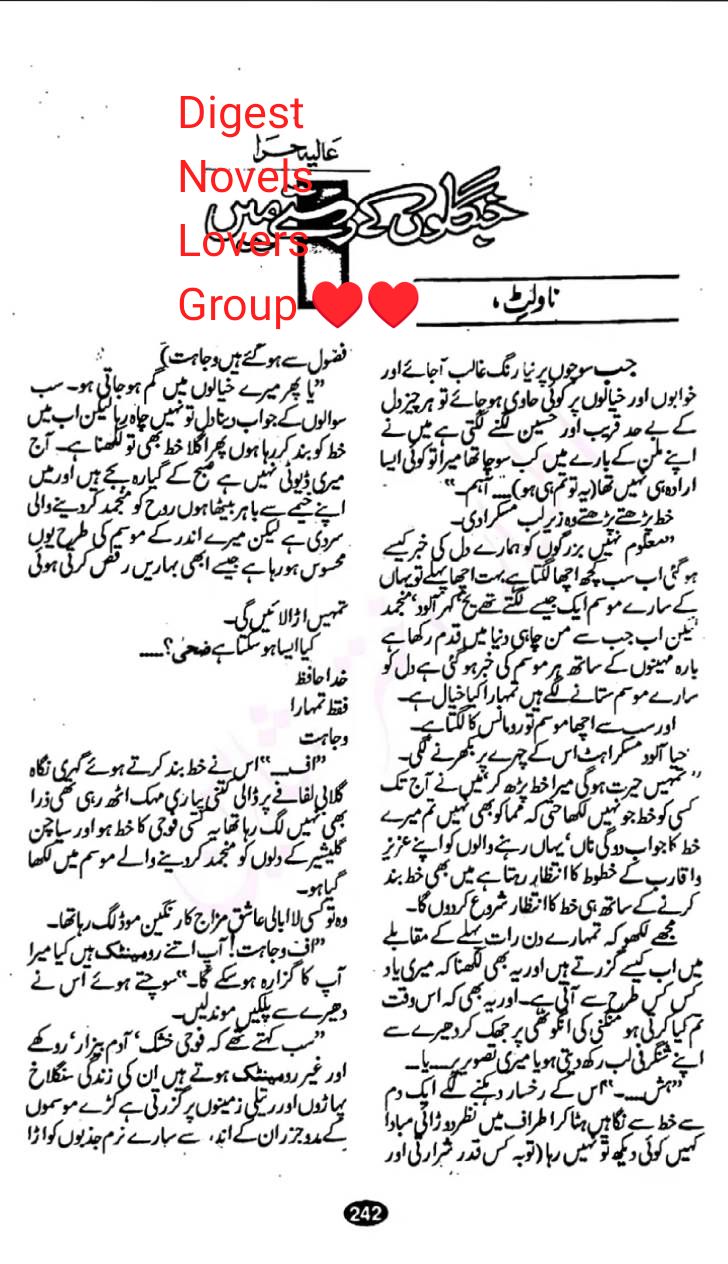 Digest
Novels
Lovers
Group
عالیہ حرا
جنگلوں کے رستے میں
ناولٹ،
جب سوچوں پر نیا رنگ غالب آجائے اور
خوابوں اور خیالوں پر کوئی حاوی ہو جائے تو ہر چیز دل
کے بے حد قریب اور حسین لگنے لگتی ہے میں نے
اپنے ملن کے بارے میں کب سوچا تھا میرا تو کوئی ایسا
ارادہ ہی نہیں تھا (یہ تو تم ہی ہو).... آہم۔"
خط پڑھتے پڑھتے وہ زیر لب مسکرا دی۔
"معلوم نہیں بزرگوں کو ہمارے دل کی خبر کیسے
ہو گئی اب سب کچھ اچھا لگتا ہے بہت اچھا پہلے تو یہاں
کے سارے موسم ایک جیسے لگتے تھے یخ، کہر آلود، منجمد
لیکن اب جب سے من چاہی دنیا میں قدم رکھا ہے
بارہ مہینوں کے ساتھ ہر موسم کی خبر ہو گئی ہے دل کو
سارے موسم ستانے لگے ہیں تمہارا کیا خیال ہے۔
اور سب سے اچھا موسم تو رومانس کا لگتا ہے۔
حیا آلود مسکراہٹ اس کے چہرے پر بکھرنے لگی۔
"تمہیں حیرت ہوگی میرا خط پڑھ کر میں نے آج تک
کسی کو خط جو نہیں لکھا حتی کہ مما کو بھی نہیں تم میرے
خط کا جواب دو گی ناں، یہاں رہنے والوں کو اپنے عزیز
و اقارب کے خطوط کا انتظار رہتا ہے میں بھی خط بند
کرنے کے ساتھ ہی خط کا انتظار شروع کردوں گا۔
مجھے لکھو کہ تمہارے دن رات پہلے کے مقابلے
میں اب کیسے گزرتے ہیں اور یہ بھی لکھنا کہ میری یاد
کس کس طرح سے آتی ہے۔ اور یہ بھی کہ اس وقت
تم کیا کرتی ہو منگنی کی انگوٹھی پر جھک کر دھیرے سے
اپنے شنگرفی لب رکھ دیتی ہو یا میری تصویر پر.... یا....
"ہش....۔" اس کے رخسار دہکنے لگے ایک دم
سے خط سے نگاہیں ہٹا کر اطراف میں نظر دوڑائی مبادا
کہیں کوئی دیکھ تو نہیں رہا (توبہ کس قدر شرارتی اور
فضول سے ہو گئے ہیں وجاہت)
"یا پھر میرے خیالوں میں گم ہو جاتی ہو۔ سب
سوالوں کے جواب دینا دل تو نہیں چاہ رہا لیکن اب میں
خط کو بند کر رہا ہوں پھر اگلا خط بھی تو لکھنا ہے۔ آج
میری ڈیوٹی نہیں ہے صبح کے گیارہ بجے ہیں اور میں
اپنے خیمے سے باہر بیٹھا ہوں روح کو منجمد کر دینے والی
سردی ہے لیکن میرے اندر کے موسم کی طرح یوں
محسوس ہو رہا ہے جیسے ابھی بہاریں رقص کرتی ہوئی
تمہیں اڑا لائیں گی۔
کیا ایسا ہو سکتا ہے ضحیٰ؟.....
خدا حافظ
فقط تمہارا
وجاہت
"اف....۔" اس نے خط بند کرتے ہوئے گہری نگاہ
گلابی لفافے پر ڈالی کتنی پیاری مہک اٹھ رہی تھی ذرا
بھی نہیں لگ رہا تھا یہ کسی فوجی کا خط ہو اور سیاچن
گلیشیر کے دلوں کو منجمد کر دینے والے موسم میں لکھا
گیا ہو۔
وہ تو کسی لا ابالی عاشق مزاج کا رنگین موڈ لگ رہا تھا۔
"اف وجاہت! آپ اتنے رومینٹک ہیں کیا میرا
آپ کا گزارہ ہو سکے گا۔" سوچتے ہوئے اس نے
دھیرے سے پلکیں موندلیں۔
"سب کہتے تھے کہ فوجی خشک، آدم بیزار، روکھے
اور غیر رومینٹک ہوتے ہیں ان کی زندگی سنگلاخ
پہاڑوں اور ریتلی زمینوں پر گزرتی ہے کڑے موسموں
کے مدوجزر ان کے اندر سے سارے نرم جذبوں کو اڑا
242